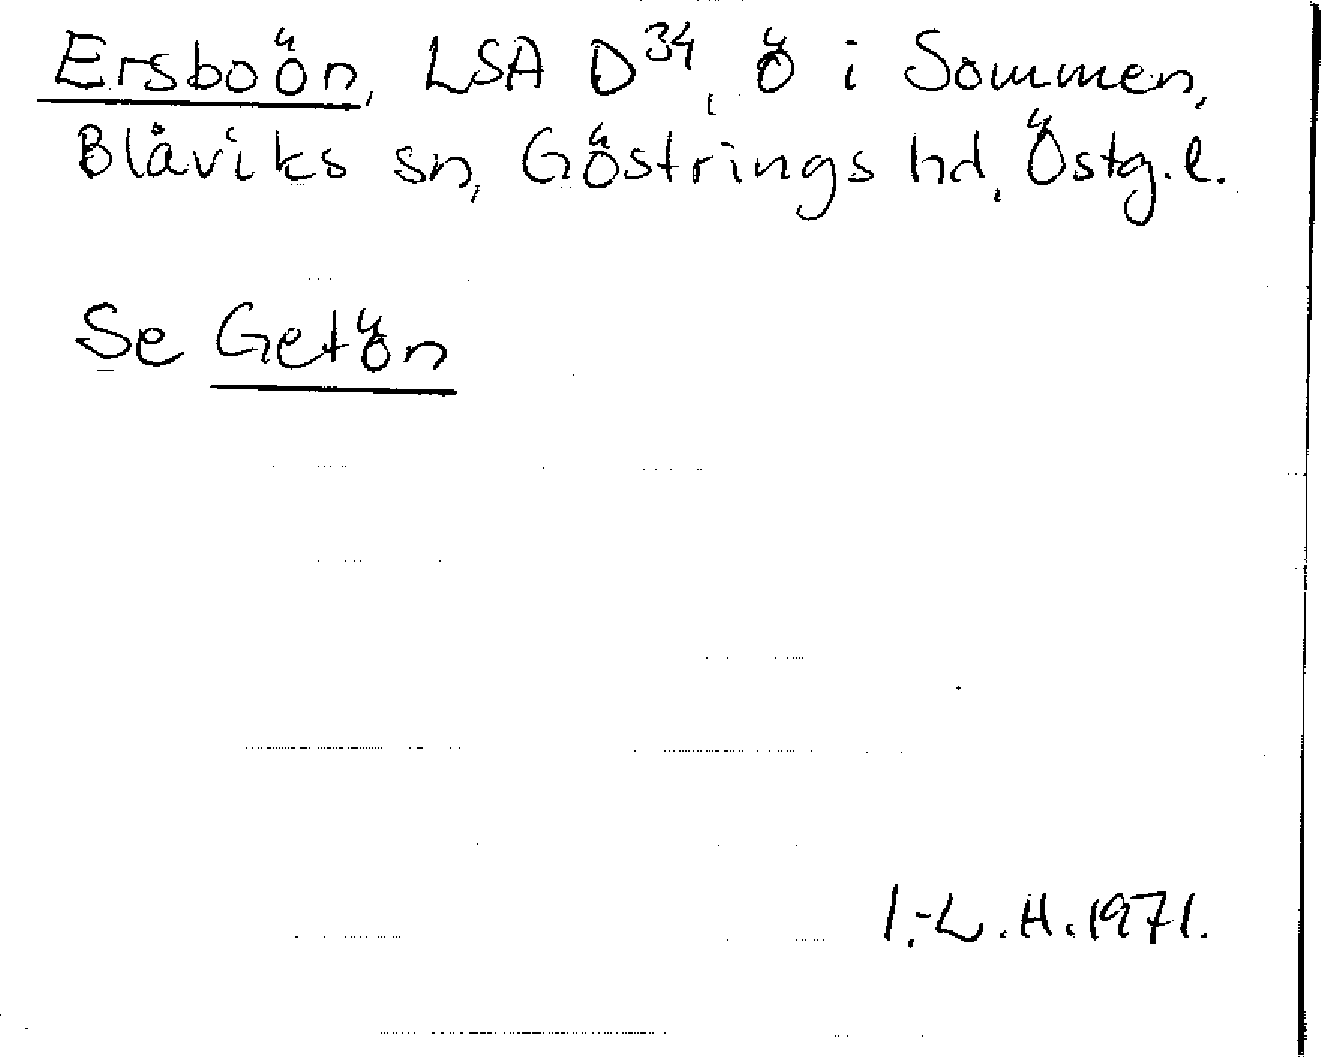 Ersboön, LSA D34, ö i Sommen,
Blåviks sn, Göstrings hd, Östg.l.
Se Getön
I.-L.H.1971.